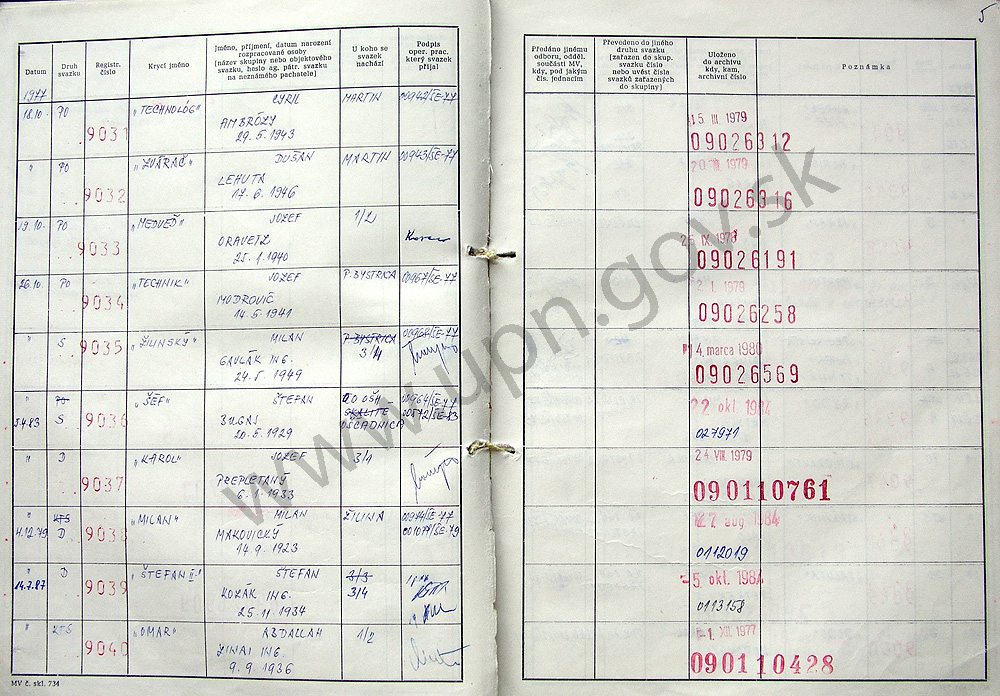 5
Datum
Druh
svazku
Registr.
číslo
Krycí jméno
Jméno, příjmení, datum narození
rozpracované osoby
(název skupiny nebo objektového
svazku, heslo ag. pátr. svazku
na neznámého pachatele)
U koho se
svazek
nachází
Podpis
oper. prac.
který svazek
přijal
Předáno jinému
odboru, odděl.
součásti MV,
kdy, pod jakým
čís. jednacím
Převedeno do jiného
druhu svazku
(zařazen do skup.
svazku číslo
nebo uvést čísla
svazků zařazených
do skupiny)
Uloženo
do archivu
kdy, kam,
archivní číslo
Poznámka
1977
18.10. PO 9031 „TECHNOLÓG" CYRIL MARTIN 00942/SE-77 15 III 1979
AMBRÓZY
29.5.1943 09026312
" PO 9032 „ZVÁRAČ" DUŠAN MARTIN 00943/SE-77
LEHUTA
17.6.1946 09026316
19.10. PO 9033 „MEDVEĎ" JOZEF 1/2
ORAVETZ
25.1.1940 09026191
26.10. PO 9034 „TECHNIK" JOZEF P.BYSTRICA 00967/SE-77 1979
MODROVIČ
14.5.1941 09026258
" S 9035 „ŽILINSKÝ" MILAN P.BYSTRICA 00968/SE-77 14 marca 1980
GAVLÁK ING. 3/4
24.5.1949 09026569
" PO 9036 „ŠEF" ŠTEFAN OO OŠH 00964/SE-77 22 okl. 1984
5.4.83 S BUGAS SKALITÉ OŠČADNICA
20.5.1929 027971
" D 9037 „KAROL" JOZEF 3/1 24 VIII. 1979
PREPLETANÝ
6.1.1933 090110761
" KTS 9038 „MILAN" MILAN ŽILINA 00974/SE-77 aug 1984
4.12.79 D MAKOVICKÝ 001077/SE-79
14.9.1923 0112019
" D 9039 „ŠTEFAN II." ŠTEFAN 3/3 -5 okl. 1984
14.7.87 KOZÁK ING. 3/4
25.11.1934 0113158
" KTS 9040 „OMAR" ABDALLAH 1/2 1. XII. 1977
ZINAI ING.
9.9.1936 090110428
MV č. skl. 734
www.upn.gov.sk